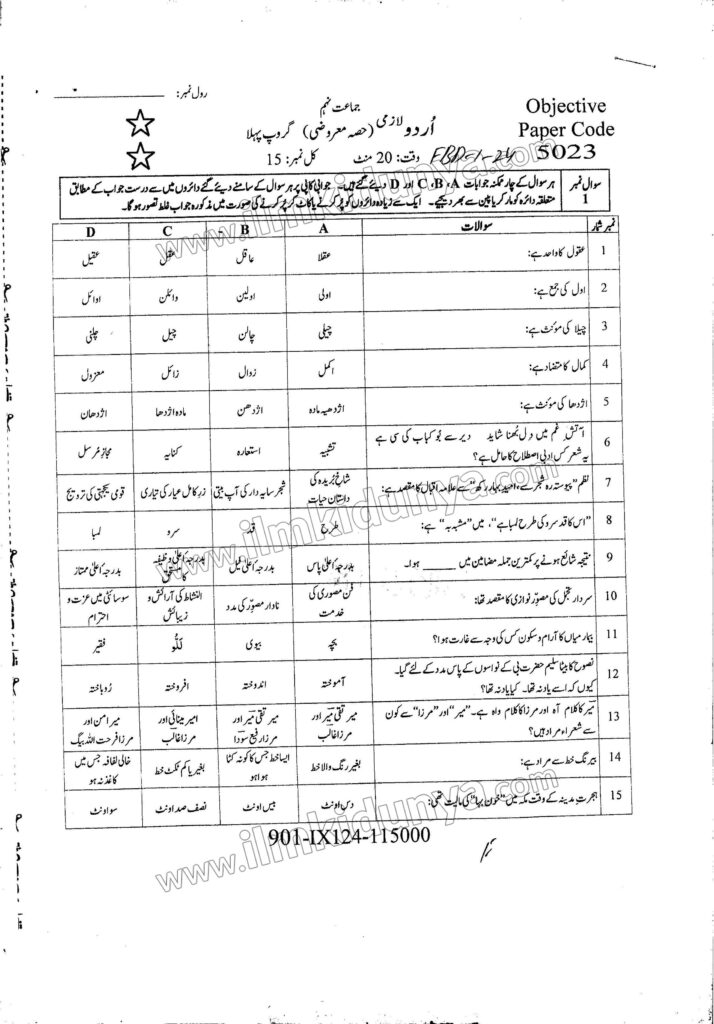 رول نمبر: ____________
جماعت نہم
Objective
اُردو لازمی (حصہ معروضی) گروپ پہلا
Paper Code
وقت: 20 منٹ کل نمبر: 15
FBD-1-24
5023
سوال نمبر 1
ہر سوال کے چار ممکنہ جوابات A، B، C اور D دیئے گئے ہیں۔ جوابی کاپی پر ہر سوال کے سامنے دیئے گئے دائروں میں سے درست جواب کے مطابق
متعلقہ دائرہ کو مارکر یا پین سے بھر دیجیے۔ ایک سے زیادہ دائروں کو پُر کرنے یا کاٹ کر پُر کرنے کی صورت میں مذکورہ جواب غلط تصور ہوگا۔
نمبر شمار سوالات A B C D
1 عقول کا واحد ہے: عقلا عاقل عقل عقیل
2 اول کی جمع ہے: اولیٰ اولین وائلن اوائل
3 چیلا کی مونث ہے: چیلی چالن چیل چلنی
4 کمال کا متضاد ہے: اکمل زوال زائل معزول
5 اژدھا کی مونث ہے: اژدھیہ مادہ اژدھن مادہ اژدھا اژدھان
6 آتشِ غم میں دل بُھنا شاید دیر سے بُو کباب کی سی ہے
یہ شعر کس ادبی اصطلاح کا حامل ہے؟ تشبیہ استعارہ کنایہ مجاز مرسل
7 نظم "پیوستہ رہ شجر سے، امید بہار رکھ" سے علامہ اقبال کا مقصد ہے: شاخِ بُریدہ کی داستان حیات شجر سایہ دار کی آپ بیتی زرِ کامل عیار کی تیاری قومی یکجہتی کی ترویج
8 "اس کا قد سرو کی طرح لمبا ہے"، میں "مشبہ بہ" ہے: طرح قد سرو لمبا
9 نتیجہ شائع ہونے پر کمترین جملہ مضامین میں ______ ہوا۔ بدرجہ اعلیٰ پاس بدرجہ اعلیٰ فیل بدرجہ اعلیٰ وظیفہ کا مستحق بدرجہ اعلیٰ ممتاز
10 سردار تجمل کی مصوّر نوازی کا مقصد تھا: فنِ مصوری کی خدمت نادار مصوّر کی مدد النشاط کی آرائش و زیبائش سوسائٹی میں عزت و احترام
11 بیمار میاں کا آرام و سکون کس کی وجہ سے غارت ہوا؟ بچہ بیوی لَلُّو فقیر
12 نصوح کا بیٹا سلیم حضرت بی کے نواسوں کے پاس مدد کے لئے گیا۔
کیوں کہ اسے یاد نہ تھا۔ کیا یاد نہ تھا؟ آموختہ اندوختہ افروختہ رُوباختہ
13 میرؔ کا کلام آہ اور مرزا کا کلام واہ ہے۔ "میر" اور "مرزا" سے کون
سے شعراء مراد ہیں؟ میر تقی میرؔ اور مرزا غالب میر تقی میرؔ اور مرزا رفیع سوداؔ امیر مینائی اور مرزا غالب میر امن اور مرزا فرحت اللہ بیگ
14 بیرنگ خط سے مراد ہے: بغیر رنگ والا خط ایسا خط جس کا کونہ کٹا ہوا ہو بغیر یا کم ٹکٹ خط خالی لفافہ جس میں کاغذ نہ ہو
15 ہجرتِ مدینہ کے وقت مکہ میں "خون بہا" کی مالیت تھی: دس اونٹ بیس اونٹ نصف صد اونٹ سو اونٹ
901-IX124-115000
www.ilmkidunya.com
www.ilmkidunya.com
www.ilmkidunya.com
www.ilmkidunya.com
www.ilmkidunya.com